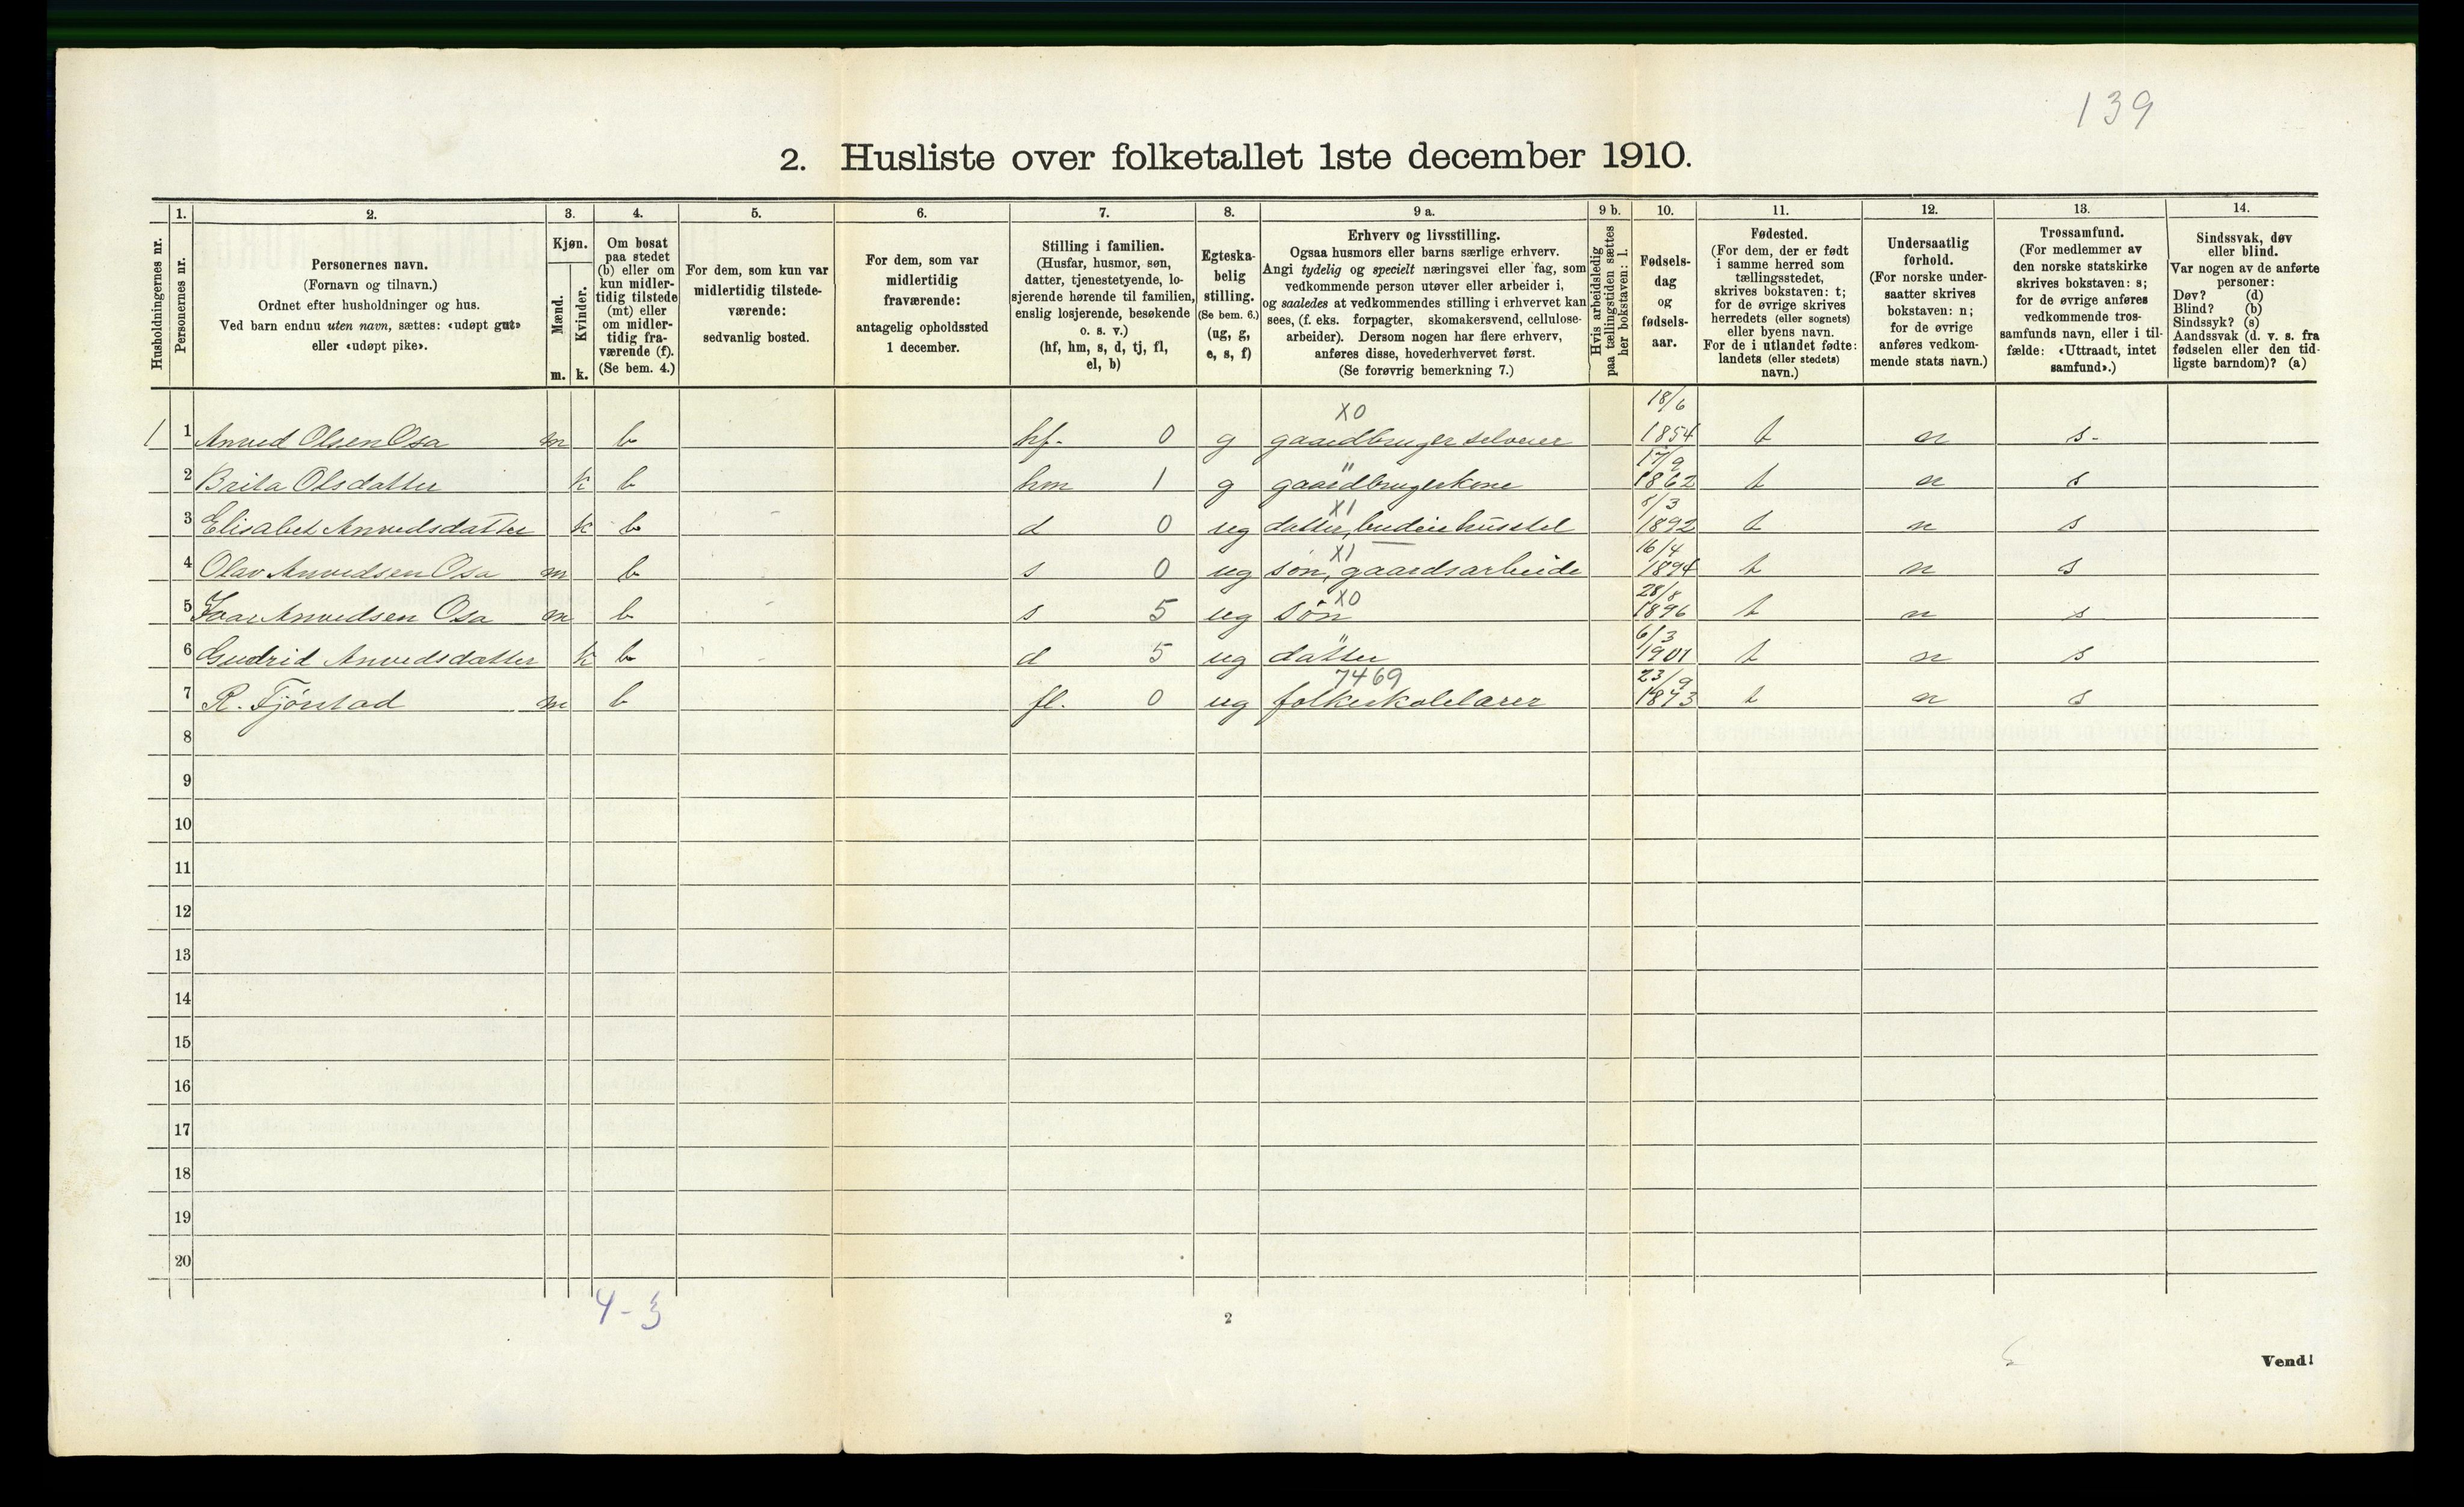 139
2. Husliste over folketallet 1ste december 1910.
Husholdningernes nr.
1.
Personernes nr.
2.
Personernes navn.
(Fornavn og tilnavn.)
Ordnet efter husholdninger og hus.
Ved barn endnu uten navn, sættes: «udøpt gut»
eller «udøpt pike».
3.
Kjøn.
Mænd.
Kvinder.
m. k.
4.
Om bosat
paa stedet
(b) eller om
kun midler-
tidig tilstede
(mt) eller
om midler-
tidig fra-
værende (f).
(Se bem. 4.)
5.
For dem, som kun var
midlertidig tilstede-
værende:
sedvanlig bosted.
6.
For dem, som var
midlertidig
fraværende:
antagelig opholdssted
1 december.
7.
Stilling i familien.
(Husfar, husmor, søn,
datter, tjenestetyende, lo-
sjerende hørende til familien,
enslig losjerende, besøkende
o. s. v.)
(hf, hm, s, d, tj, fl,
el, b)
8.
Egteska-
belig
stilling.
(Se bem. 6.)
(ug, g,
e, s, f)
9 a.
Erhverv og livsstilling.
Ogsaa husmors eller barns særlige erhverv.
Angi tydelig og specielt næringsvei eller fag, som
vedkommende person utøver eller arbeider i,
og saaledes at vedkommendes stilling i erhvervet kan
sees, (f. eks. forpagter, skomakersvend, cellulose-
arbeider). Dersom nogen har flere erhverv,
anføres disse, hovederhvervet først.
(Se forøvrig bemerkning 7.)
9 b.
Hvis arbeidsledig
paa tællingstiden sættes
her bokstaven: l.
10.
Fødsels-
dag
og
fødsels-
aar.
11.
Fødested.
(For dem, der er født
i samme herred som
tællingsstedet,
skrives bokstaven: t;
for de øvrige skrives
herredets (eller sognets)
eller byens navn.
For de i utlandet fødte:
landets (eller stedets)
navn.)
12.
Undersaatlig
forhold.
(For norske under-
saatter skrives
bokstaven: n;
for de øvrige
anføres vedkom-
mende stats navn.)
13.
Trossamfund.
(For medlemmer av
den norske statskirke
skrives bokstaven: s;
for de øvrige anføres
vedkommende tros-
samfunds navn, eller i til-
fælde: «Uttraadt, intet
samfund».)
14.
Sindssvak, døv
eller blind.
Var nogen av de anførte
personer:
Døv? (d)
Blind? (b)
Sindssyk? (s)
Aandssvak (d. v. s. fra
fødselen eller den tid-
ligste barndom)? (a)
X0 18/6
1 1 Anved Olsen Osa m b hf. 0 g gaardbruger selveier 1854 t n s.
" 17/9
2 Brita Olsdatter k b hm 1 g gaardbrugerkone 1862 t n s
X1 8/3
3 Elisabet Anvedsdatter k b d 0 ug datter, budeie husstel 1892 t n s
X1 16/4
4 Olav Anvedsen Osa m b s 0 ug søn, gaardsarbeide 1894 t n s
X0 28/8
5 Ivar Anvedsen Osa m b s 5 ug søn 1896 t n s
" 6/3
6 Gudrid Anvedsdatter k b d 5 ug datter 1901 t n s
7469 23/9
7 R. Fjørstad m b fl. 0 ug folkeskolelærer 1873 t n s
8
9
10
11
12
13
14
15
16
17
18
19
20
4-3
2
Vend!